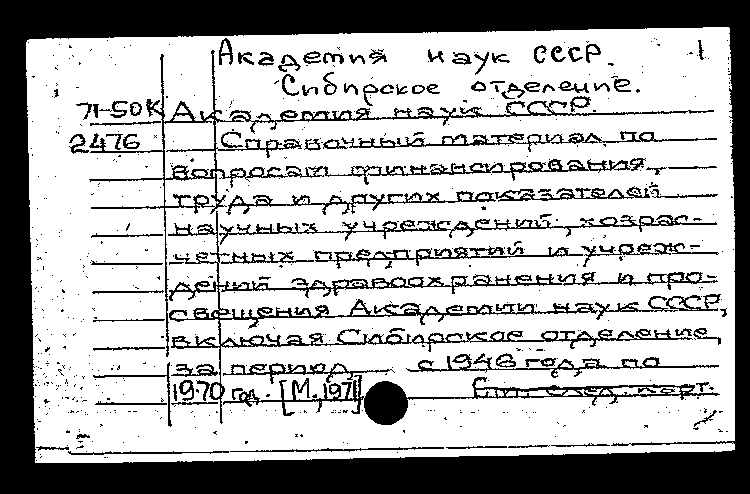 Академия наук СССР. 1
Сибирское отделение.
71-50К Академия наук СССР.
2476 Справочный материал по
вопросам финансирования,
труда и других показателей
научных учреждений, хозрас-
четных предприятий и учреж-
дений здравоохранения и про-
свещения Академии наук СССР,
включая Сибирское отделение,
за период с 1946 года по
1970 год. [М., 1971]
след. карт.